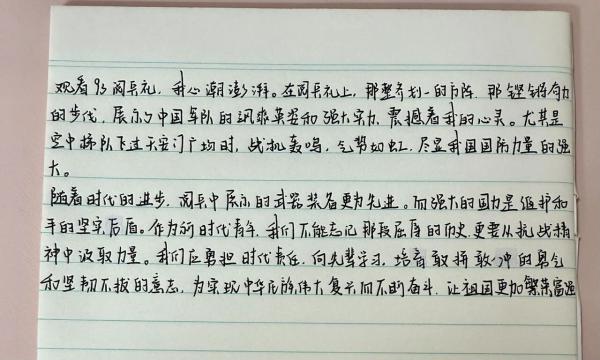 观看93阅兵礼，我心潮澎湃。在阅兵礼上，那整齐划一的方阵，那铿锵有力
的步伐，展示了中国军队的飒爽英姿和强大实力，震撼着我的心灵。尤其是
空中梯队飞过天安门广场时，战机轰鸣，气势如虹，尽显我国国防力量的强
大。
随着时代的进步，阅兵中展示的武器装备更为先进。而强大的国力是维护和
平的坚实后盾。作为新时代青年，我们不能忘记那段屈辱的历史，更要从抗战精
神中汲取力量。我们应勇担时代责任，向先辈学习，培育敢拼敢冲的勇气
和坚韧不拔的意志，为实现中华民族伟大复兴而不断奋斗，让祖国更加繁荣富强